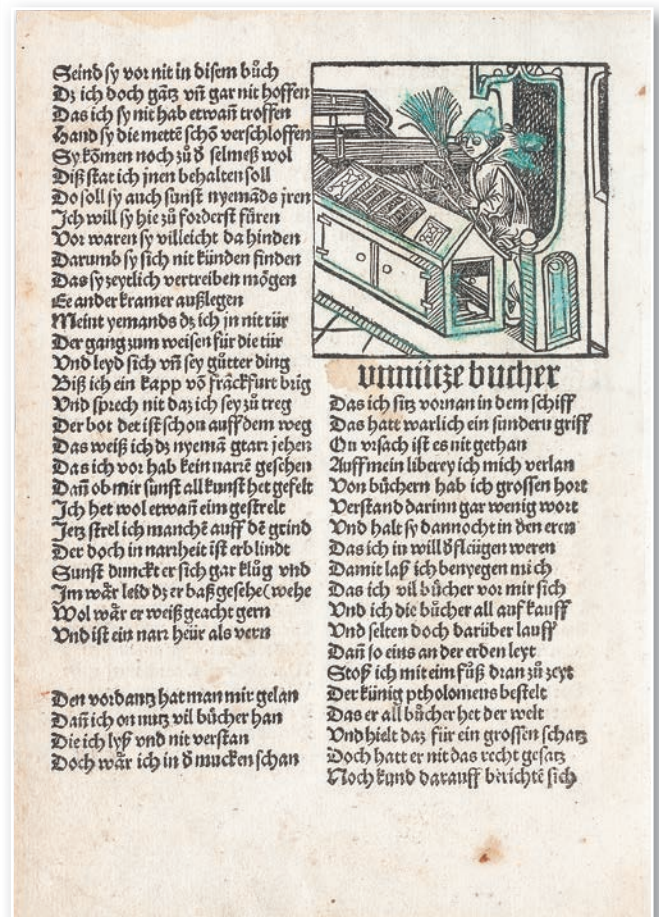 Seind sy vor nit in disem bůch
Dz ich doch gātz vn̄ gar nit hoffen
Das ich sy nit hab etwan̄ troffen
Hand sy die mettē schō verschloffen
Sy kōmen noch zů đ selmeß wol
Diß stat ich jnen behalten soll
Do soll sy auch sunst nyemāds jren
Ich will sy hie zů forderst fůren
Vor waren sy villeicht da hinden
Darumb sy sich nit künden finden
Das sy zeytlich vertreiben mögen
Ee ander kramer außlegen
Meint yemands dz ich jn nit rür
Der gang zum weisen für die tür
Vnd leyd sich vn̄ sey gůtter ding
Biß ich ein kapp vō frāckfurt brīg
Vnd sprech nit daz ich sey zů treg
Der bot det ist schon auff dem weg
Das weiß ich dz nyemā gtarr jehen
Das ich vor hab kein narrē gesehen
Dan̄ ob mir sunst all kunst het gefelt
Ich het wol etwan̄ eim gestrelt
Jetz strel ich manchē auff dē grind
Der doch in narrheit ist erblindt
Sunst dunckt er sich gar klůg vnd
Im wår leid dz er baß gesehe (wehe
Wol wår er weiß geacht gern
Vnd ist ein narr heür als vern
Den vordantz hat man mir gelan
Dan̄ ich on nutz vil bůcher han
Die ich lyß vnd nit verstan
Doch wår ich in đ mucken schan
vnnütze bucher
Das ich sitz vornan in dem schiff
Das hatt warlich ein sundern griff
On vrsach ist es nit gethan
Auff mein liberey ich mich verlan
Von bůchern hab ich grossen hort
Verstand darinn gar wenig wort
Vnd halt sy dannocht in den eren
Das ich in will đ fleügen weren
Damit laß ich benyegen mich
Das ich vil bůcher vor mir sich
Vnd ich die bůcher all auf kauff
Vnd selten doch darüber lauff
Dan̄ so eins an der erden leyt
Stoß ich mit eim fůß dran zů zeyt
Der künig ptholomeus bestelt
Das er all bůcher het der welt
Vnd hielt daz für ein grossen schatz
Doch hatt er nit das recht gesatz
Noch kund darauff berichtē sich